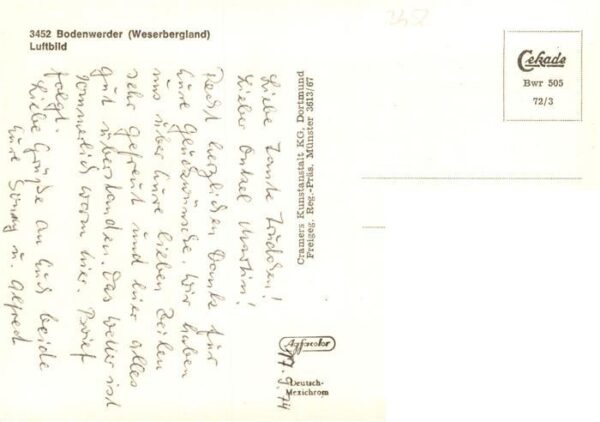 3452 Bodenwerder (Weserbergland)
Luftbild
3452
Cekade
Bwr 505
72/3
Cramers Kunstanstalt KG, Dortmund
Freigeg. Reg.-Präs. Münster 3613/67
Agfacolor
Deutsch-
Mexichrom
17.9.74
Liebe Tante
Lieber Onkel Martin!
Recht herzlichen Dank für
Eure Glückwünsche. Wir haben
uns über Eure lieben Zeilen
sehr gefreut und hier alles
gut überstanden. Das Wetter ist
sommerlich warm hier. Brief
folgt.
Liebe Grüße an Euch beide
Eure u. Alfred